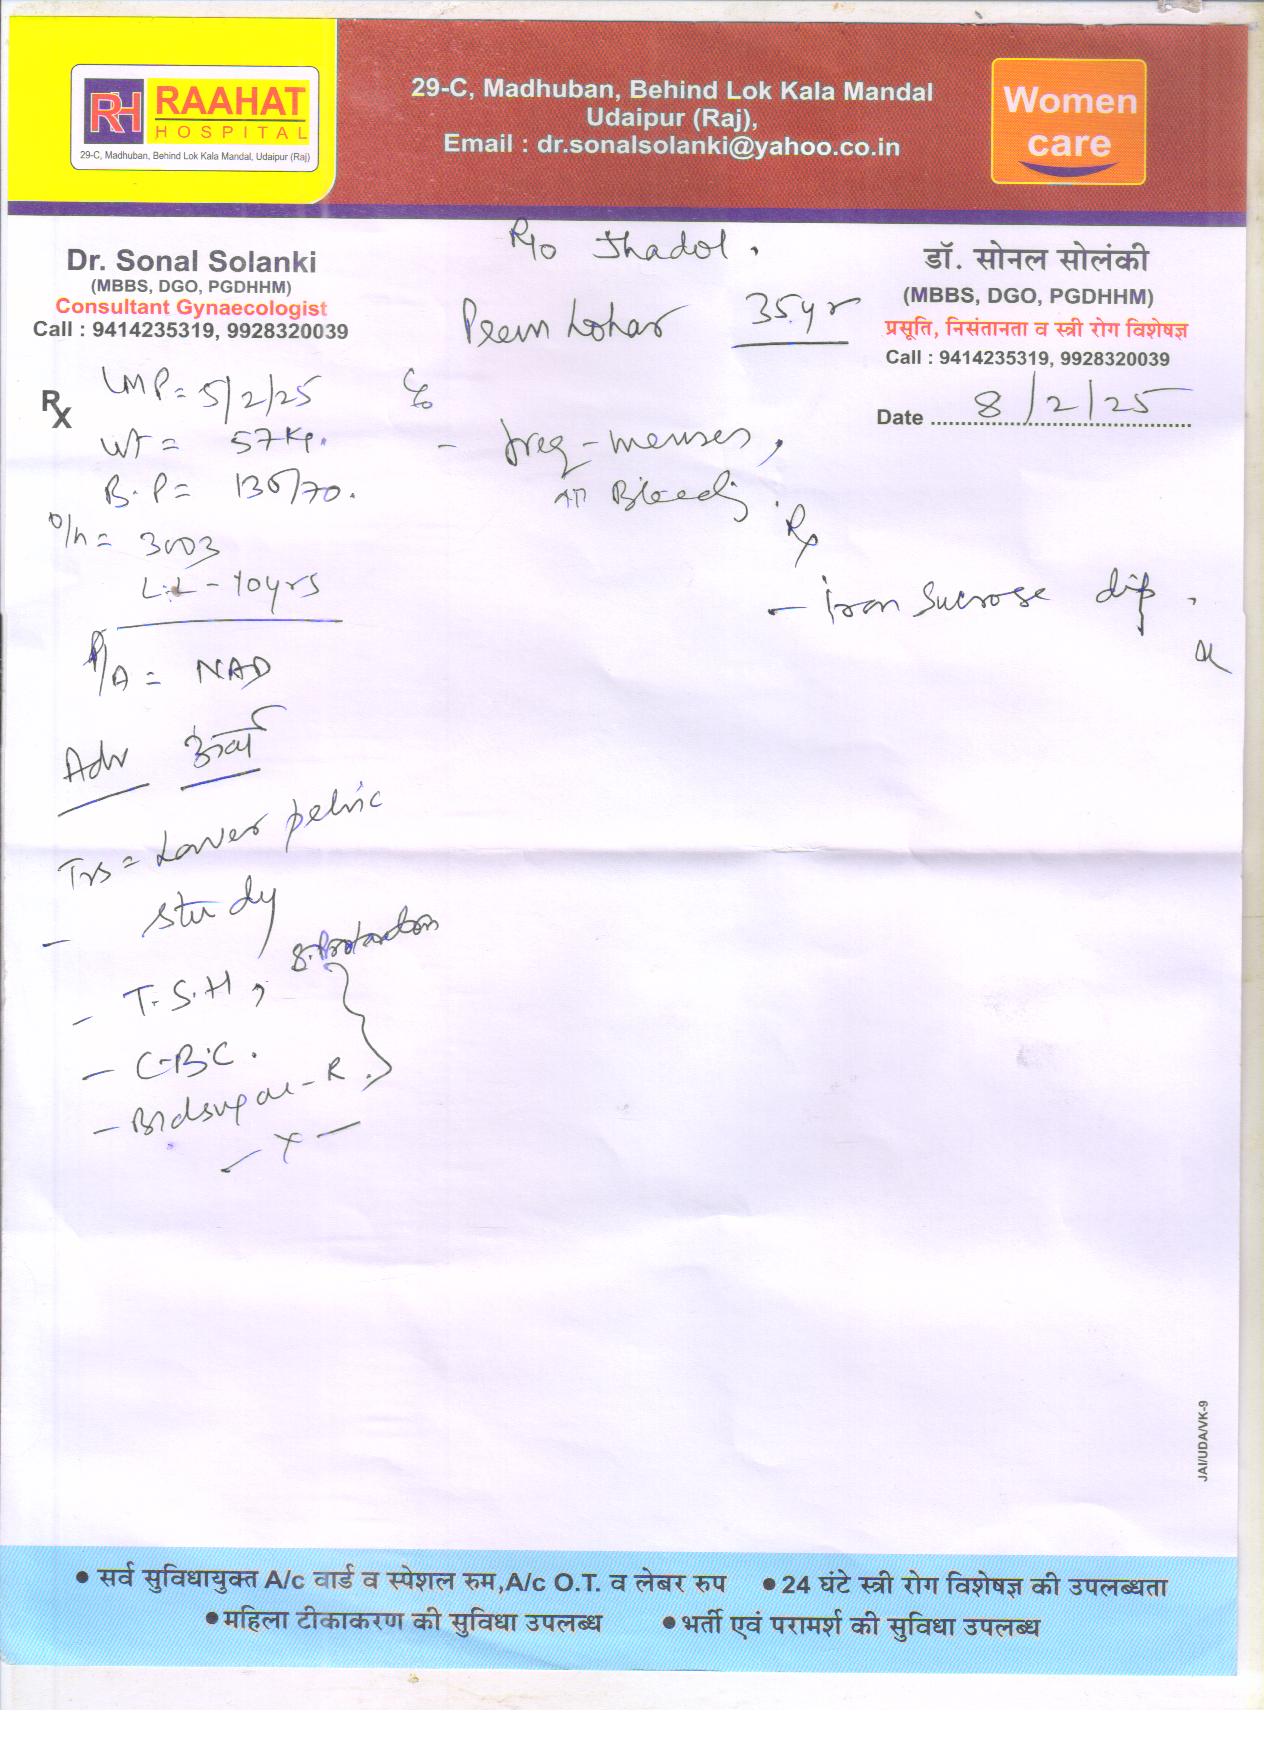 RH RAAHAT
HOSPITAL
29-C, Madhuban, Behind Lok Kala Mandal, Udaipur (Raj)
29-C, Madhuban, Behind Lok Kala Mandal
Udaipur (Raj),
Email : dr.sonalsolanki@yahoo.co.in
Women
care
Dr. Sonal Solanki
(MBBS, DGO, PGDHHM)
Consultant Gynaecologist
Call : 9414235319, 9928320039
R/o Jhadol.
Prem Lohar 35yr
डॉ. सोनल सोलंकी
(MBBS, DGO, PGDHHM)
प्रसूति, निसंतानता व स्त्री रोग विशेषज्ञ
Call : 9414235319, 9928320039
Date 8/2/25
Rx
LMP = 5/2/25
wt = 57Kg.
B.P =
O/h =
L.L - 10yrs
P/A = NAD
C/o
- freq-menses,
Bleeding.
Rx
- Iron Sucrose drip.
Adv
TVS = Lower pelvic
study
- T.S.H, S. Prolactin
- C.B.C.
- Bld sugar - R.
- x -
JAI/UDA/VK-9
• सर्व सुविधायुक्त A/c वार्ड व स्पेशल रुम,A/c O.T. व लेबर रुप • 24 घंटे स्त्री रोग विशेषज्ञ की उपलब्धता
• महिला टीकाकरण की सुविधा उपलब्ध • भर्ती एवं परामर्श की सुविधा उपलब्ध